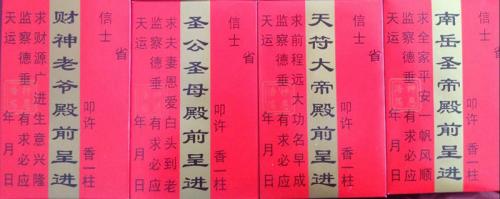 省
信士 叩许 香一柱
财神老爷殿前呈进
求财源广进生意兴隆
监察德垂 有求必应
天运 年 月 日
省
信士 叩许 香一柱
圣公圣母殿前呈进
求夫妻恩爱白头到老
监察德垂 有求必应
天运 年 月 日
省
信士 叩许 香一柱
天符大帝殿前呈进
求前程远大功名早成
监察德垂 有求必应
天运 年 月 日
省
信士 叩许 香一柱
南岳圣帝殿前呈进
求全家平安一帆风顺
监察德垂 有求必应
天运 年 月 日